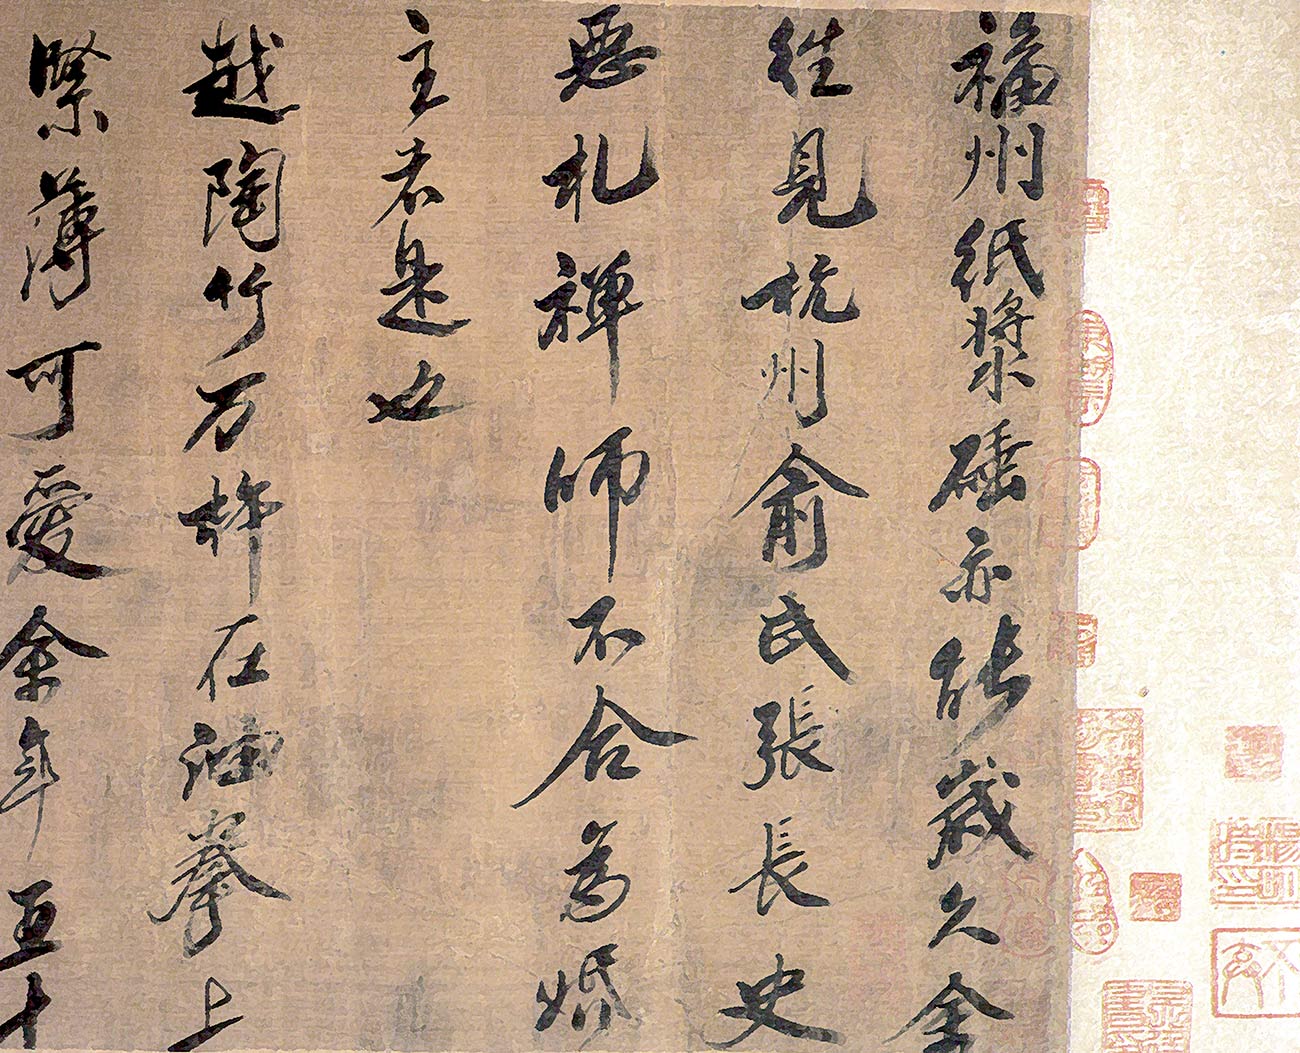 福州紙漿硾亦能歲久余
往見杭州俞氏張長史
惡札禪師不合為婚
主者是也
越陶竹万杵在油拳上
緊薄可愛余年五十